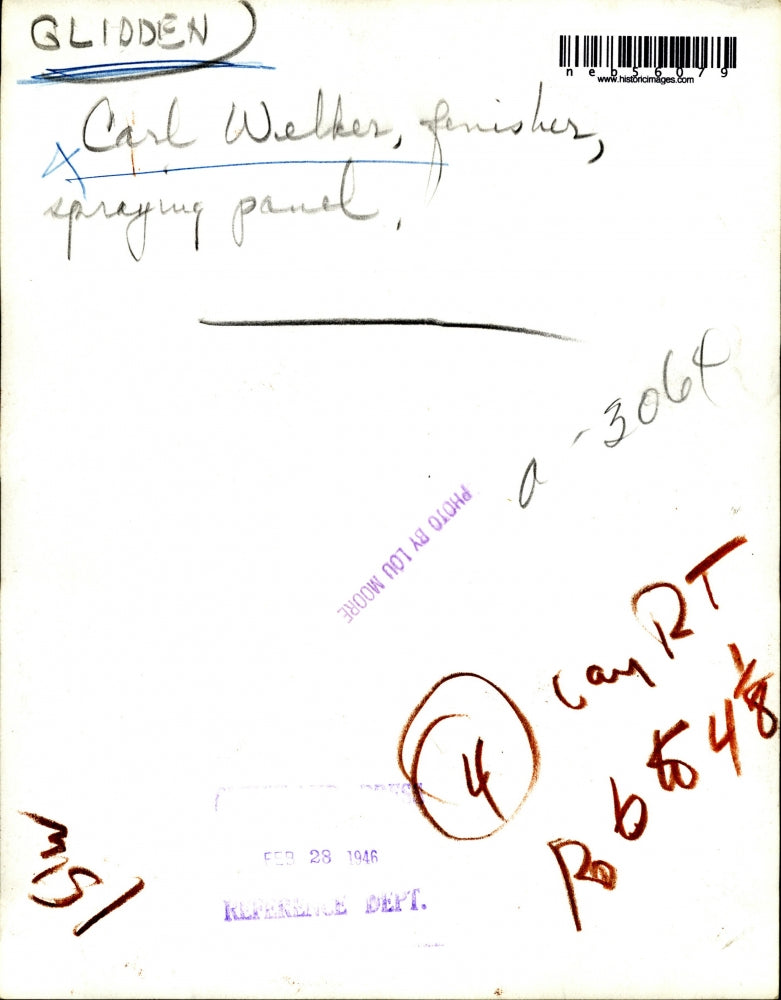 GLIDDEN
neb56079
www.historicimages.com
Carl Welker, finisher,
spraying panel.
a-3064
PHOTO BY LOU MOORE
RT
4
4 1/8
PRESS
FEB 28 1946
REFERENCE DEPT.